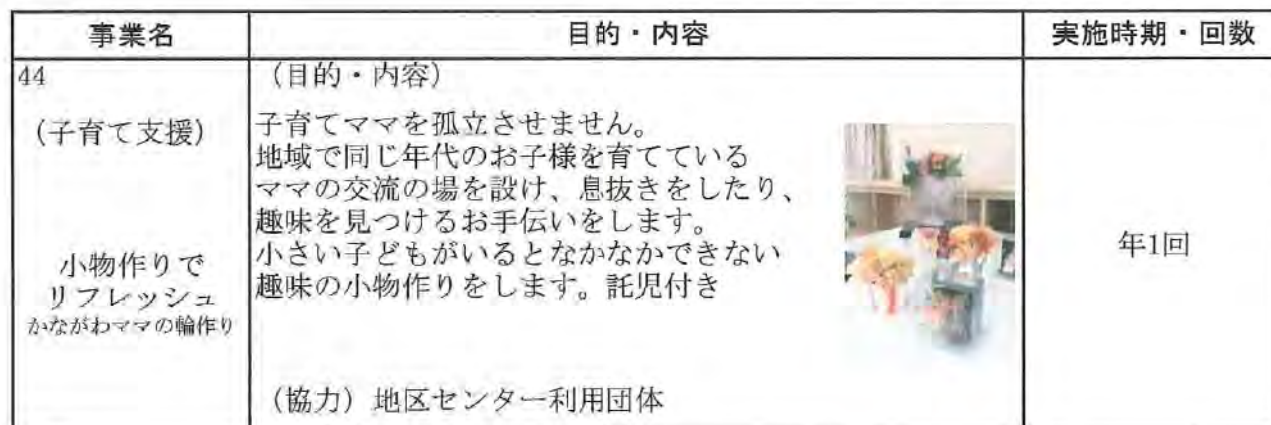 事業名
目的・内容
実施時期・回数
44
（子育て支援）
小物作りで
リフレッシュ
かながわママの輪作り
（目的・内容）
子育てママを孤立させません。
地域で同じ年代のお子様を育てている
ママの交流の場を設け、息抜きをしたり、
趣味を見つけるお手伝いをします。
小さい子どもがいるとなかなかできない
趣味の小物作りをします。託児付き
（協力）地区センター利用団体
年1回